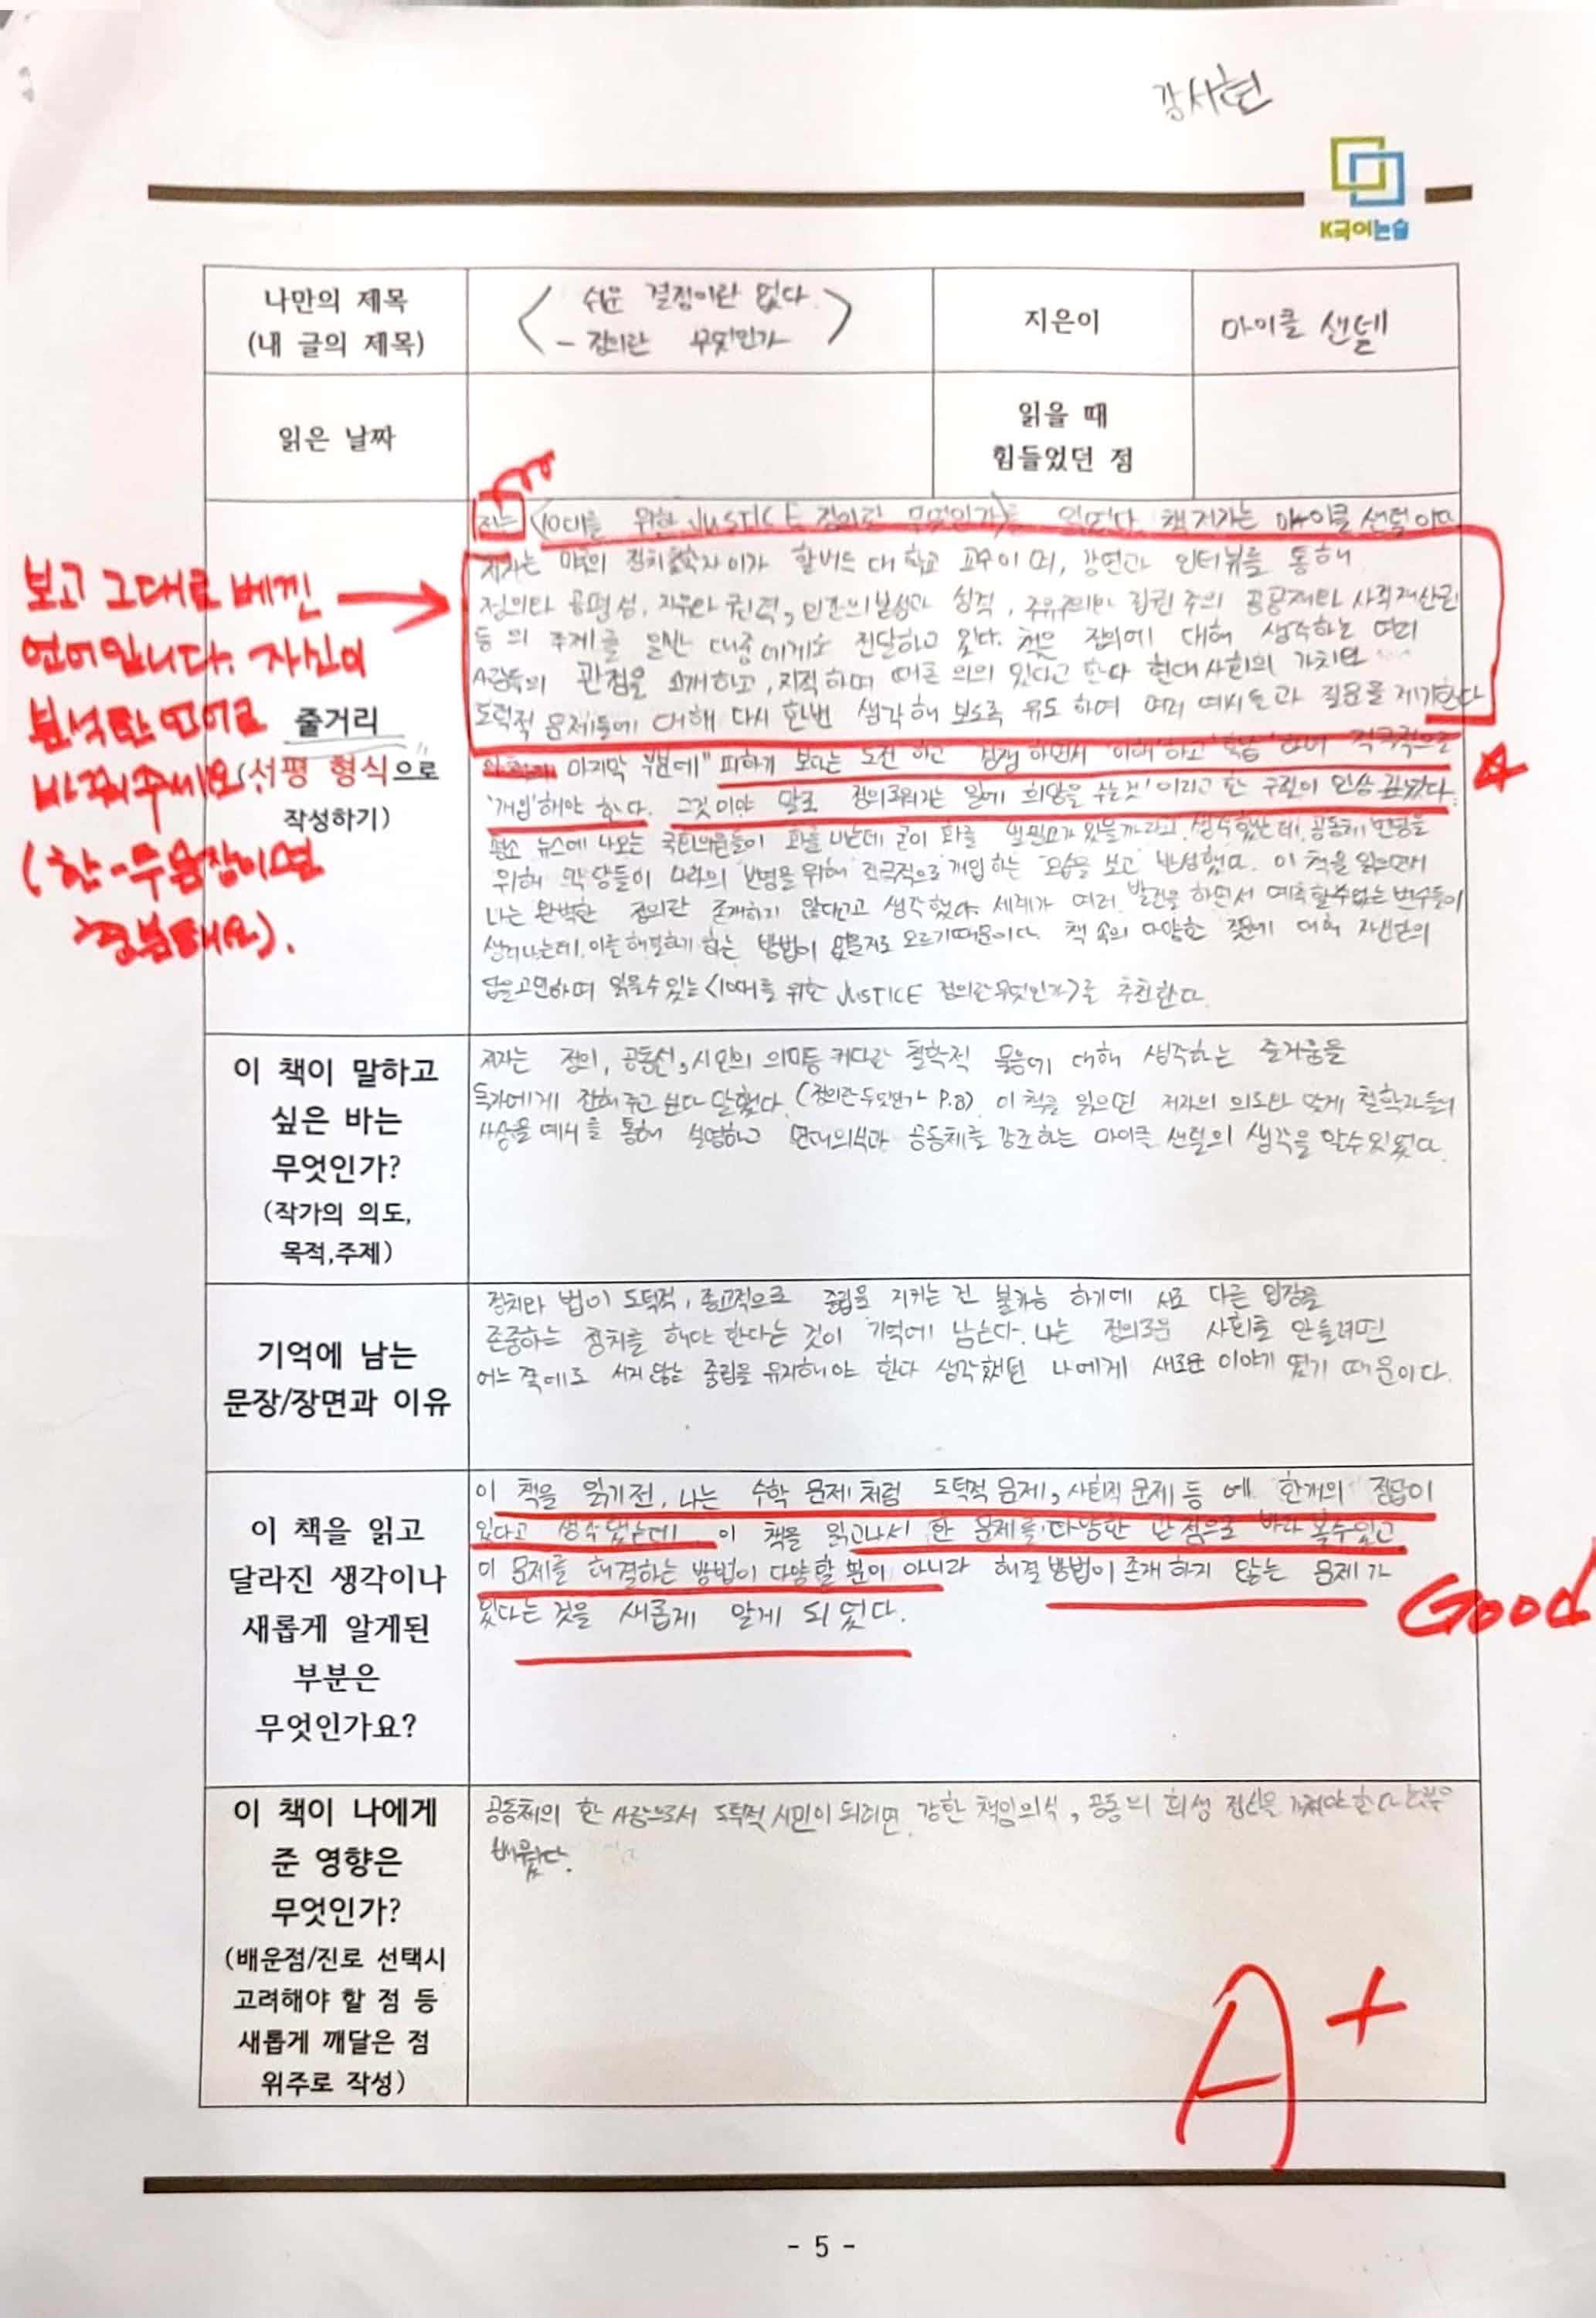 강서현
K국어논술
나만의 제목
(내 글의 제목)
< 쉬운 결정이란 없다.
- 정의란 무엇인가 >
지은이
마이클 샌델
읽은 날짜
읽을 때
힘들었던 점
보고 그대로 베낀
언어입니다. 자신이
분석한 언어로
바꿔주세요
(한-두 문장이면
충분해요).
줄거리
(서평 형식으로
작성하기)
저는 <10대를 위한 JUSTICE 정의란 무엇인가>를 읽었다. 책 저자는 마이클 샌델이다
저자는 미국의 정치철학자이가 할버드 대학교 교수이며, 강연과 인터뷰를 통해
정의와 공평성, 자유와 권력, 인간의 본성과 성격, 자유주의와 집권주의 공공재와 사적재산권
등의 주제를 일반 대중에게도 전달하고 있다. 책은 정의에 대해 생각하는 여러
사람들의 관점을 소개하고, 지적하며 때론 의의 있다고 한다 현대사회의 가치와
도덕적 문제들에 대해 다시 한번 생각해 보도록 유도하며 여러 예시들과 질문을 제기한다
마지막 부분에 "피하기 보다는 도전하고 경쟁하면서 '이해'하고 '학습'하며 적극적으로
'개입'해야 한다. 그것이야 말로 정의로워가는 일에 희망을 주는것'이라고 한 구절이 인상 깊었다.
평소 뉴스에 나오는 국회의원들이 화를 내는데 굳이 화를 낼 필요가 있을까라고 생각했는데, 공동체 번영을
위해 각 당들이 나라의 번영을 위해 적극적으로 개입하는 모습을 보고 반성했다. 이 책을 읽으면서
나는 완벽한 정의란 존재하지 않는다고 생각했다. 세계가 여러 발전을 하면서 예측할수없는 변수들이
생겨나는데, 이를 해결하게 하는 방법이 없을지도 모르기때문이다. 책 속의 다양한 질문에 대해 자신만의
답을 고민하며 읽을수 있는 <10대를 위한 JUSTICE 정의란 무엇인가>를 추천한다.
이 책이 말하고
싶은 바는
무엇인가?
(작가의 의도,
목적,주제)
저자는 정의, 공동선, 시민의 의미등 커다란 철학적 물음에 대해 생각하는 즐거움을
독자에게 전해주고 싶다 말했다. (정의란 무엇인가 P.8). 이 책을 읽으면 저자의 의도와 맞게 철학자들의
사상을 예시를 통해 설명하고 연대의식과 공동체를 강조하는 마이클 샌델의 생각을 알수있었다.
기억에 남는
문장/장면과 이유
정치와 법이 도덕적, 종교적으로 중립을 지키는 건 불가능 하기에 서로 다른 입장을
존중하는 정치를 해야 한다는 것이 기억에 남는다. 나는 정의로운 사회를 만들려면
어느쪽에도 서지 않는 중립을 유지해야 한다 생각했던 나에게 새로운 이야기였기 때문이다.
이 책을 읽고
달라진 생각이나
새롭게 알게된
부분은
무엇인가요?
이 책을 읽기전, 나는 수학 문제처럼 도덕적 문제, 사회적 문제 등에 한개의 정답이
있다고 생각했는데 이 책을 읽고나서 한 문제를 다양한 관점으로 바라 볼수있고
이 문제를 해결하는 방법이 다양할 뿐이 아니라 해결 방법이 존재하지 않는 문제가
있다는 것을 새롭게 알게 되었다.
Good
이 책이 나에게
준 영향은
무엇인가?
(배운점/진로 선택시
고려해야 할 점 등
새롭게 깨달은 점
위주로 작성)
공동체의 한 사람으로서 도덕적 시민이 되려면 강한 책임의식, 공동의 희생 정신을 가져야 한다
배웠다.
A+
- 5 -